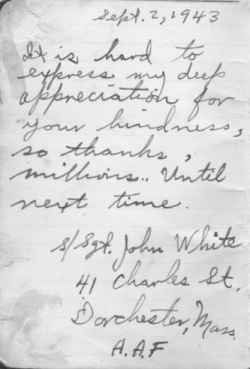 Sept. 2, 1943
It is hard to
express my deep
appreciation for
your kindness,
so thanks,
millions.. Until
next time.
S/Sgt. John White
41 Charles St.
Dorchester, Mass.
A.A.F